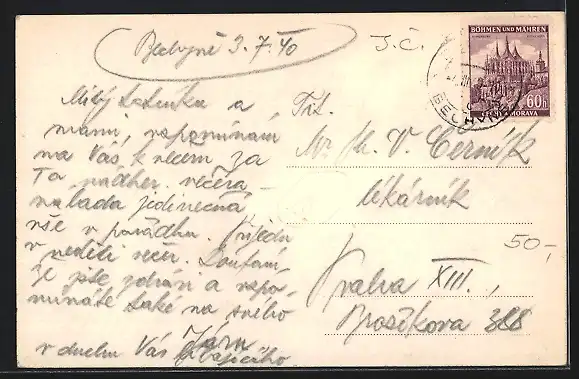 Bechyně 3.7.40
J.Č.
BÖHMEN UND MÄHREN
60h
ČECHY A MORAVA
Milý tatínku a
mami, vzpomínám
na Vás k večeru za
Ta nádher. večera
nálada jedinečná
vše v pořádku. Přijedu
v neděli večer. Doufám,
že jste zdrávi a vzpo-
mínáte také na svého
v duchu Vás líbajícího
Járu
Tit.
Mr. Ph. V. Černík
lékárník
Praha XIII.,
Brožíkova 388
50,-